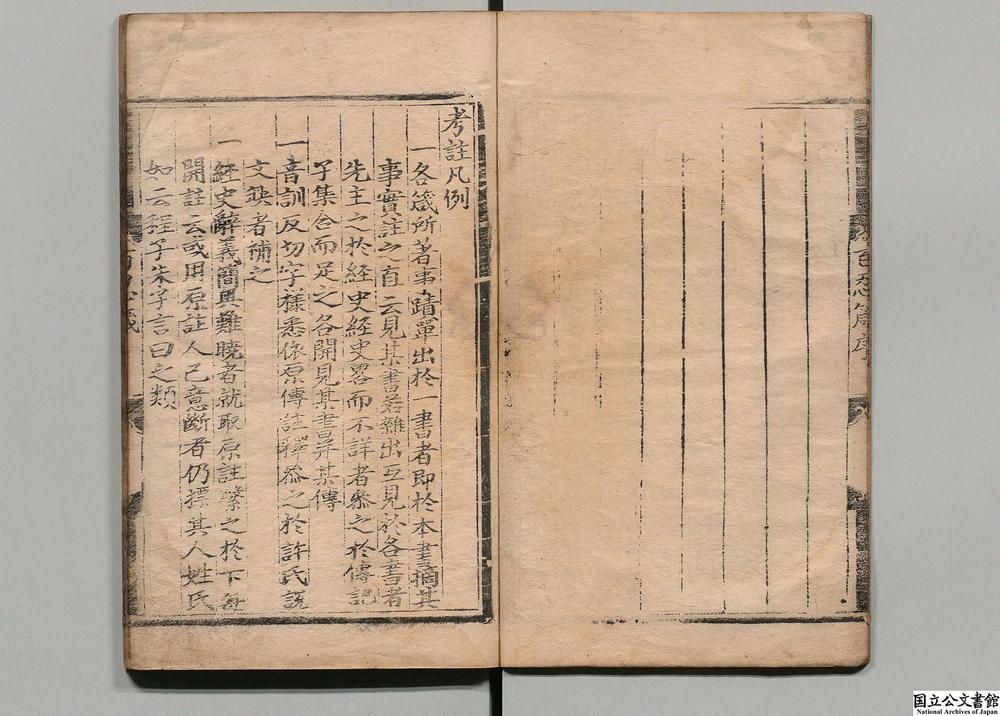 百忍箴序
考註凡例
一各箴所著事蹟單出於一書者即於本書摘其
事實註之首云見某書若雜出互見於各書者
先主之於経史経史畧而不詳者叅之於傳記
子集合而足之各開見某書并某傳
一音訓反切字樣悉依原傳註釋叅之於許氏説
文缺者補之
一経史辭義簡奥難曉者就取原註繫之於下每
開註云或用原註人己意斷者仍摽其人姓氏
如云程子朱子言曰之類
国立公文書館
National Archives of Japan